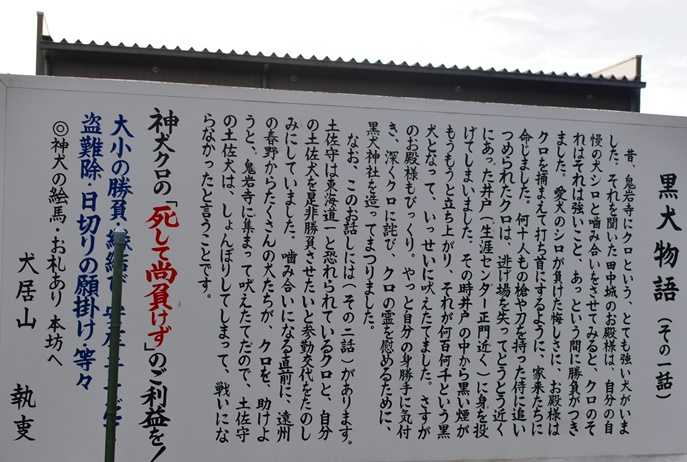 黒犬物語（その一話）
昔、鬼岩寺にクロという、とても強い犬がいま
した。それを聞いた田中城のお殿様は、自分の自
慢の犬シロと噛み合いをさせてみると、クロのそ
れはそれは強いこと、あっという間に勝負がつき
ました。愛犬のシロが負けた悔しさに、お殿様は
クロを捕まえて打ち首にするように、家来たちに
命じました。何十人もの槍や刀を持った侍に追い
つめられたクロは、逃げ場を失ってとうとう近く
にあった井戸（生涯センター正門近く）に身を投
げてしまいました。その時井戸の中から黒い煙が
もうもうと立ち上がり、それが何百何千という黒
犬となって、いっせいに吠えたてました。さすが
のお殿様もびっくり。やっと自分の身勝手に気付
き、深くクロに詫び、クロの霊を慰めるために、
黒犬神社を造ってまつりました。
なお、このお話しには（その二話）があります。
土佐守は東海道一と恐れられているクロと、自分
の土佐犬を是非勝負させたいと参勤交代をたのし
みにしていました。噛み合いになる直前に、遠州
の春野からたくさんの犬たちが、クロを、助けよ
うと、鬼岩寺に集まって吠えたてたので、土佐守
の土佐犬は、しょんぼりしてしまって、戦いにな
らなかったと言うことです。
神犬クロの「死して尚負けず」のご利益を！
大小の勝負・縁結び・安産・
盗難除・日切りの願掛け・等々
◎神犬の絵馬・お札あり 本坊へ
犬居山 執事